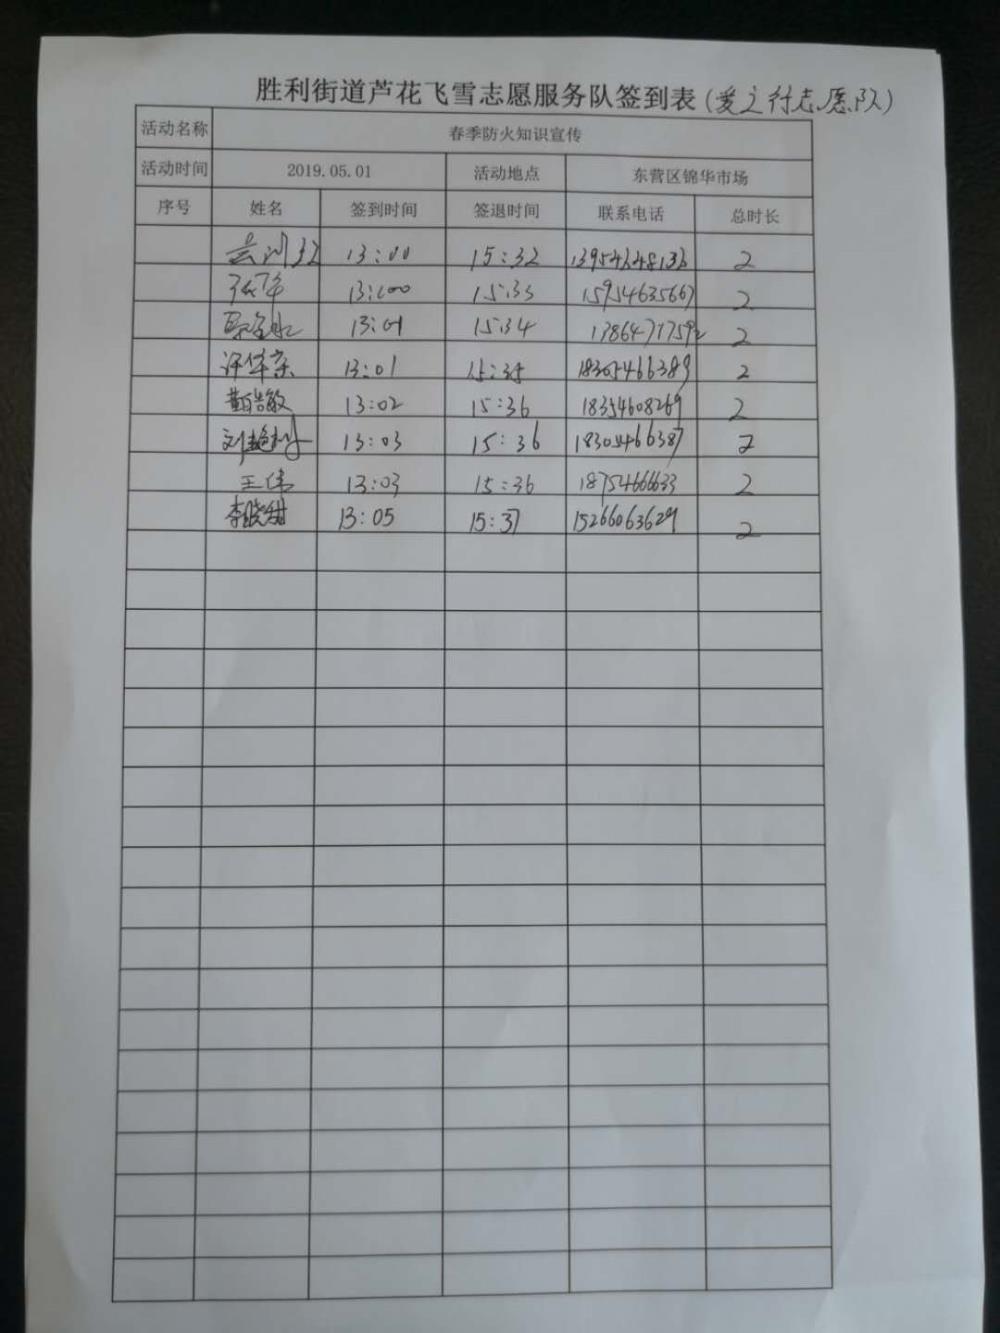 胜利街道芦花飞雪志愿服务队签到表(爱之行志愿队)
活动名称 春季防火知识宣传
活动时间 2019.05.01 活动地点 东营区锦华市场
序号 姓名 签到时间 签退时间 联系电话 总时长
13:00 15:32 2
张华 13:00 15:33 15954635667 2
13:01 15:34 2
许华亲 13:01 15:35 18305466389 2
黄皓敏 13:02 15:36 18354608269 2
13:03 15:36 18305466387 2
王伟 13:03 15:36 18754666633 2
李晓甜 13:05 15:37 15266063629 2